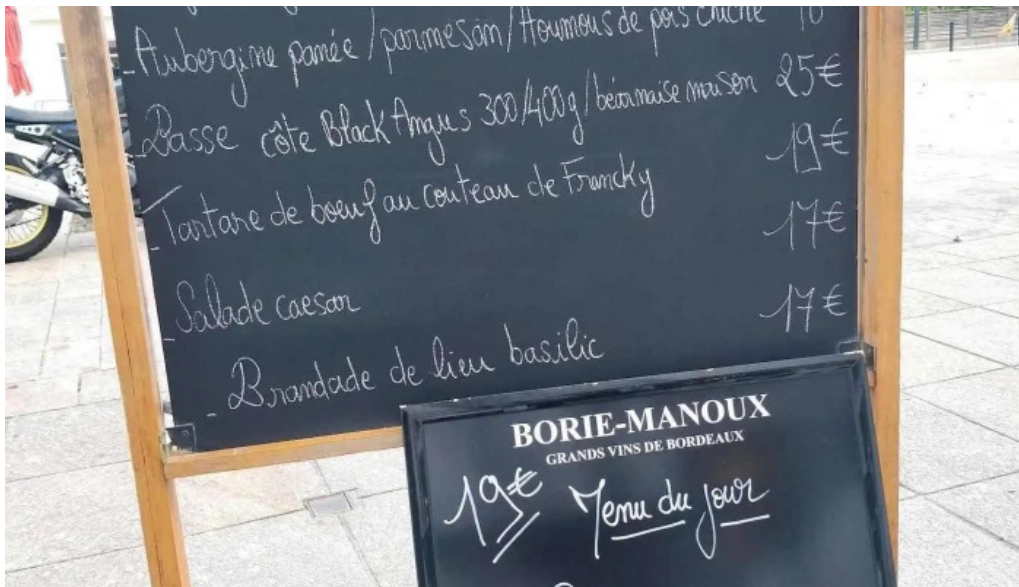 - Aubergine panée / parmesan / Houmous de pois chiche
- Basse côte Black Angus 300/400g / béarnaise maison 25€
- Tartare de boeuf au couteau de Francky 19€
- Salade caesar 17€
- Brandade de lieu basilic 17€
BORIE-MANOUX
GRANDS VINS DE BORDEAUX
19€ Menu du jour